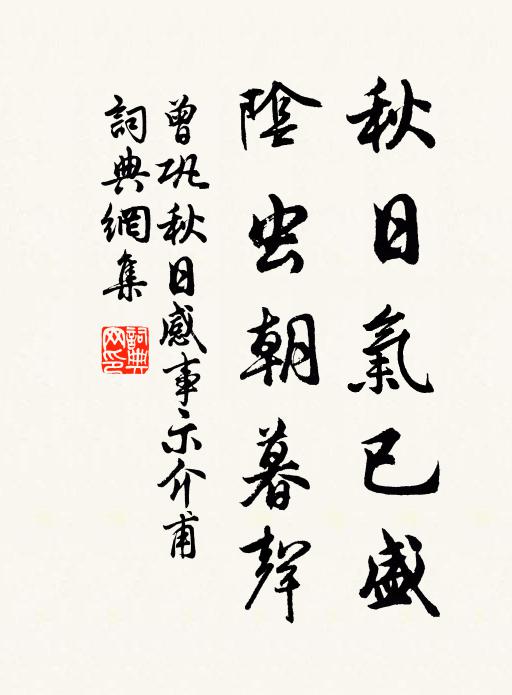 秋日氣已盛
陰虫朝暮聲
曾巩秋日感事示介甫
詞典網集
詞典网印